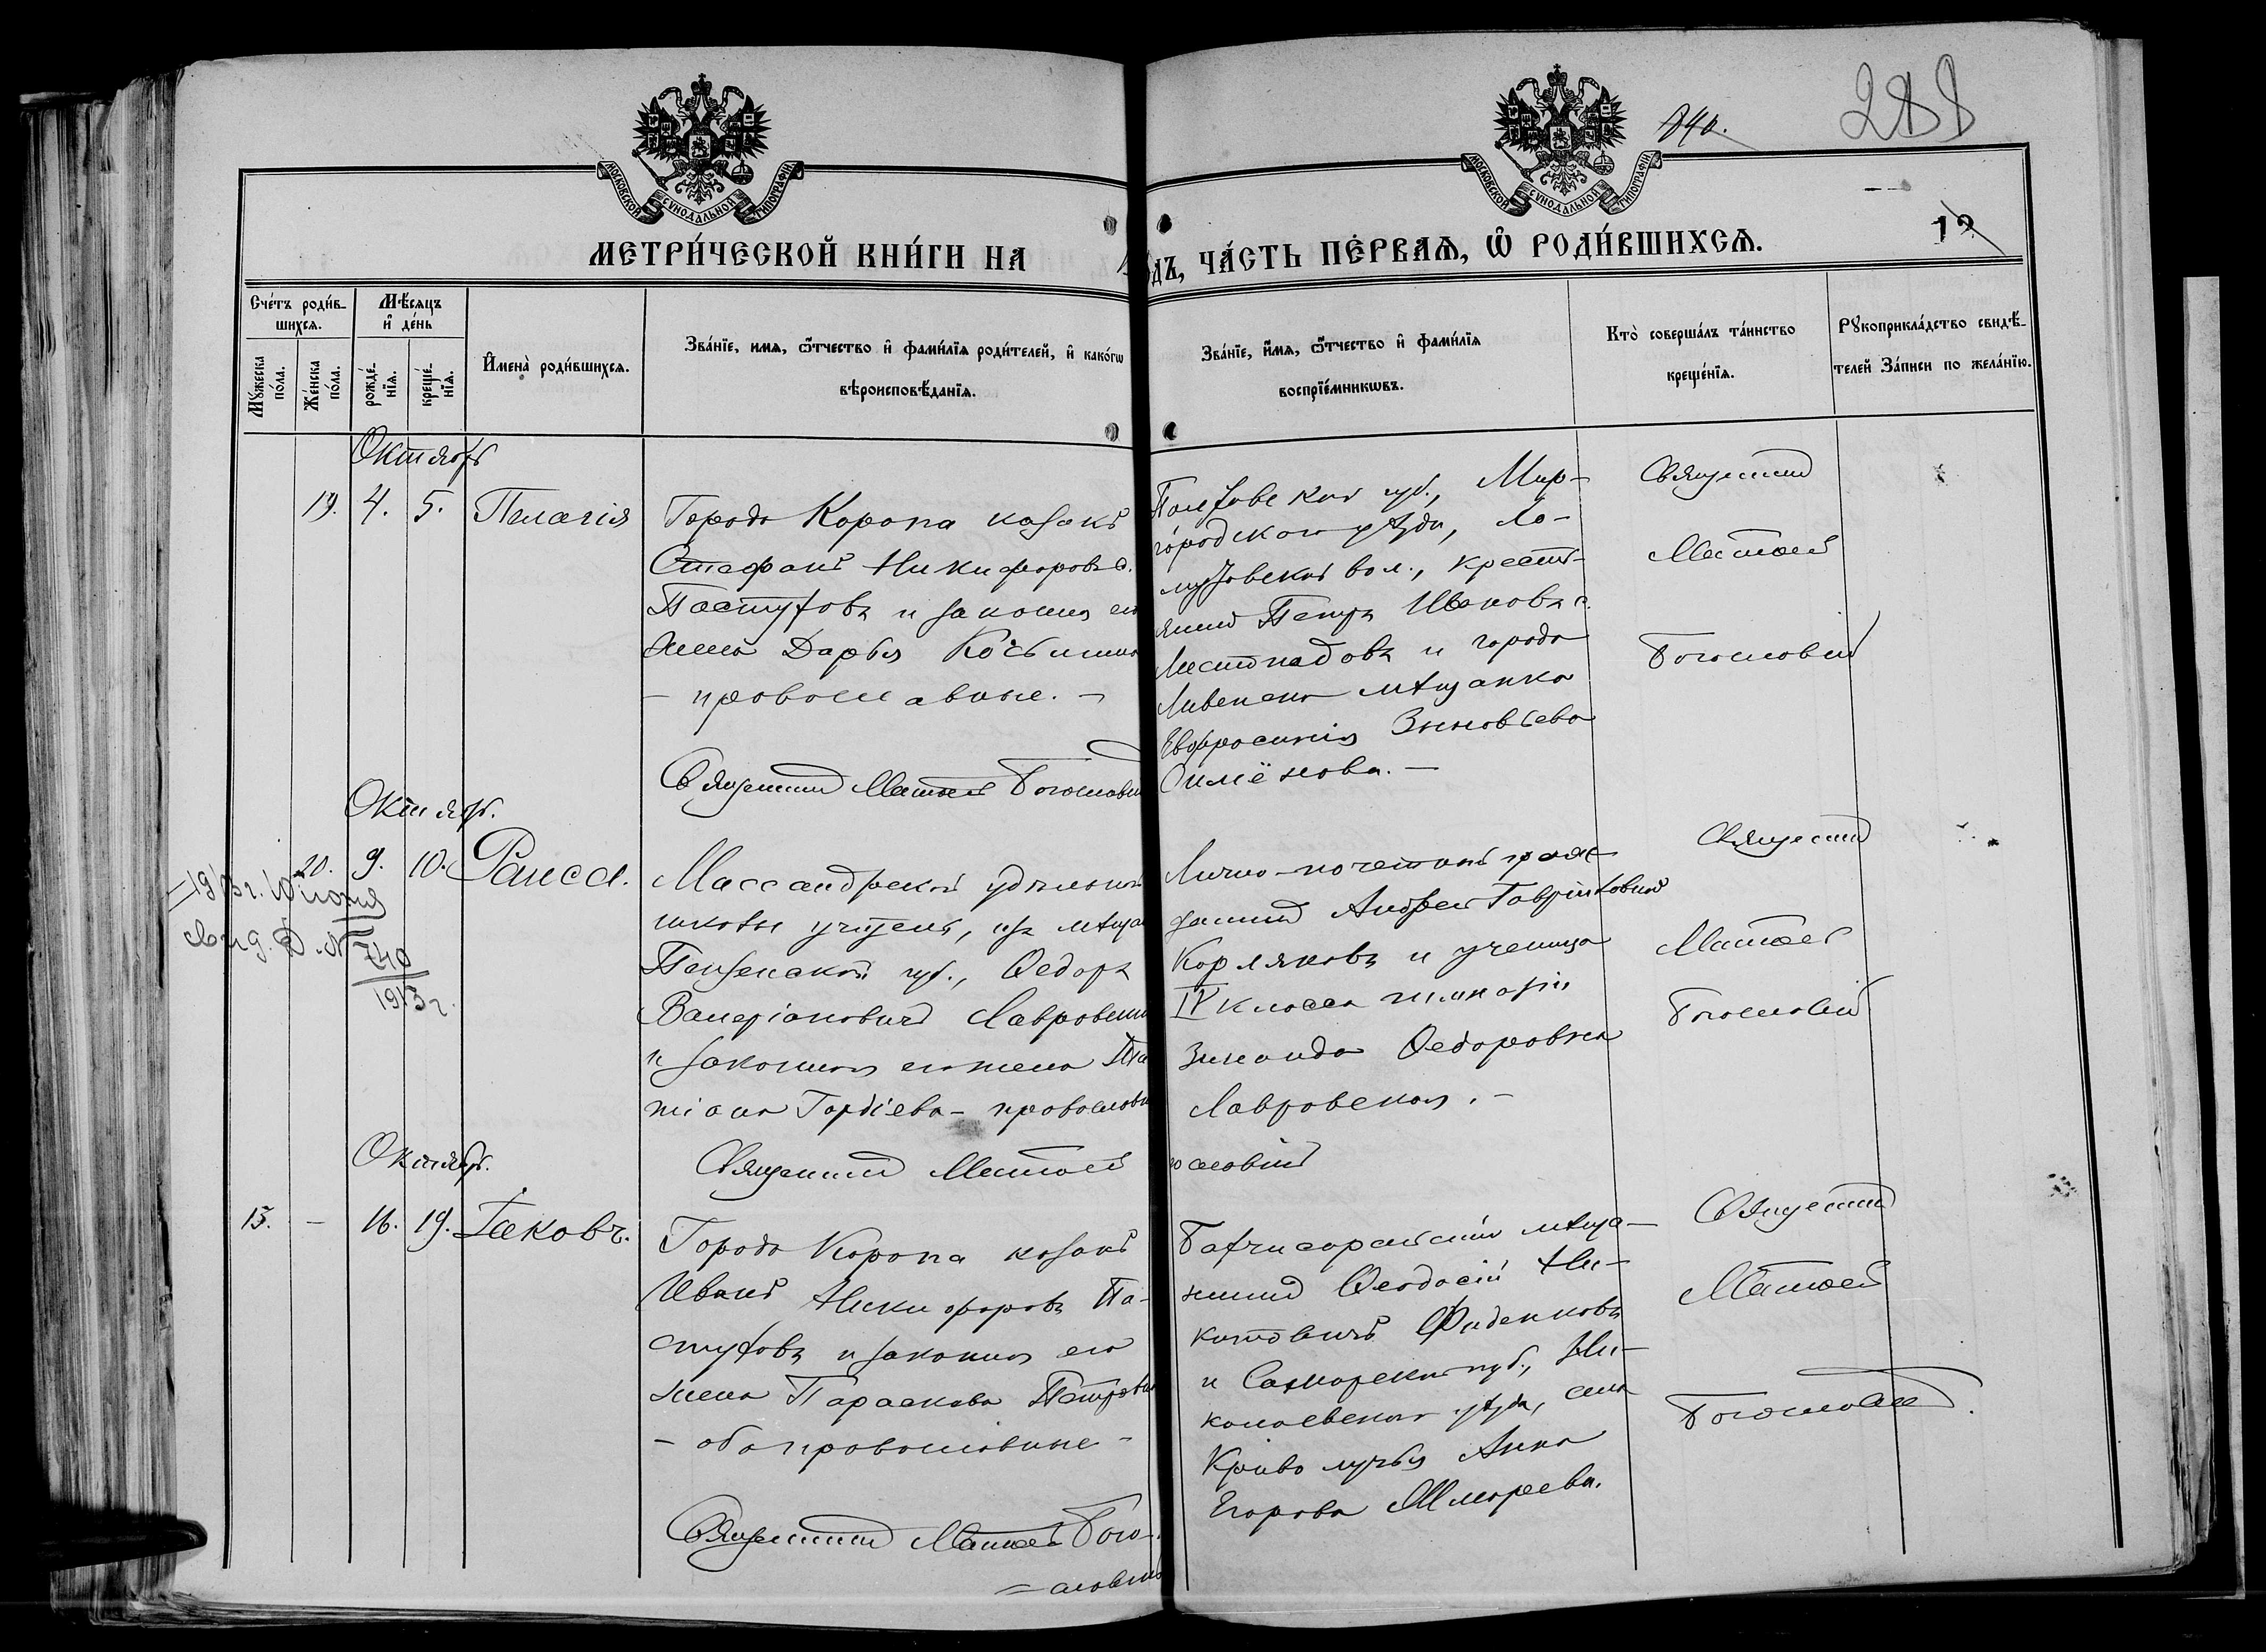 840.
288
МОСКОВСКОЙ СѴНОДАЛЬНОЙ ТИПОГРАФІИ
МОСКОВСКОЙ СѴНОДАЛЬНОЙ ТИПОГРАФІИ
12
МЕТРИ́ЧЕСКОЙ КНИ́ГИ НА
ДЪ, ЧА́СТЬ ПЕ́РВАѦ, Ѿ РОДИ́ВШИХСѦ.
Сче́тъ роди́в-
шихсѧ.
Мѣ́сѧцъ
и҆ де́нь
Мꙋ́жеска
по́ла.
Же́нска
по́ла.
рожде́-
нїѧ.
креще́-
нїѧ.
И҆мена̀ роди́вшихсѧ.
Зва́нїе, имѧ, ѻ҆́тчество и҆ фами́лїѧ роди́телей, и҆ како́гѡ
вѣроисповѣ́данїѧ.
Зва́нїе, и҆́мѧ, ѻ҆́тчество и҆ фами́лїѧ
воспрїе́мникѡвъ.
Кто̀ соверша́лъ та́инство
креще́нїѧ.
Рꙋкоприкла́дство свидѣ́-
телей За́писи по жела́нїю.
Октябрь
19. 4. 5. Пелагія
Города Коропа казакъ
Стефанъ Никифоровъ с.
Пастуховъ и законная его
жена Дарья Косьмина
- православные. -
Священникъ Матѳей Богословскій
Полтавской губ., Мир-
городскаго уѣзда, Ло-
мутовской вол., кресть-
янинъ Петръ Ивановъ с.
Листпадовъ и города
Ливенска мѣщанка
Евфросинія Зиновьева
Симёнова. -
Священникъ
Матѳей
Богословскій
Октябрь.
20. 9. 10. Раиса.
1913 г. Юня
свид. д. №
740
1913 г.
Массандрской удѣльной
школы учитель, изъ мѣщанъ
Пензенской губ., Ѳедоръ
Валеріановичъ Лавровскій
и законная его жена Та
тіана Гордіева - православн
Священникъ Матѳей
гословскій
Лично-почетный граж-
данинъ Андрей Гавріиловичъ
Корляковъ и ученица
IV класса гимназіи
Зинаида Ѳедоровна
Лавровская. -
Священникъ
Матѳей
Богословскій
Октябрь.
15. - 16. 19. Іаковъ.
Города Коропа казакъ
Иванъ Никифоровъ Па-
стуховъ и законная его
жена Параскева Петрова
- оба православные -
Священникъ Матѳей Бого-
= словскій
Бахчисарайскій мѣща-
нинъ Ѳеодосій Ни-
китовичъ Фиденковъ
и Самарской губ., Ни-
колаевскаго уѣзда, села
Криволучья Анна
Егорова Шмореева.
Священникъ
Матѳей
Богословскій.